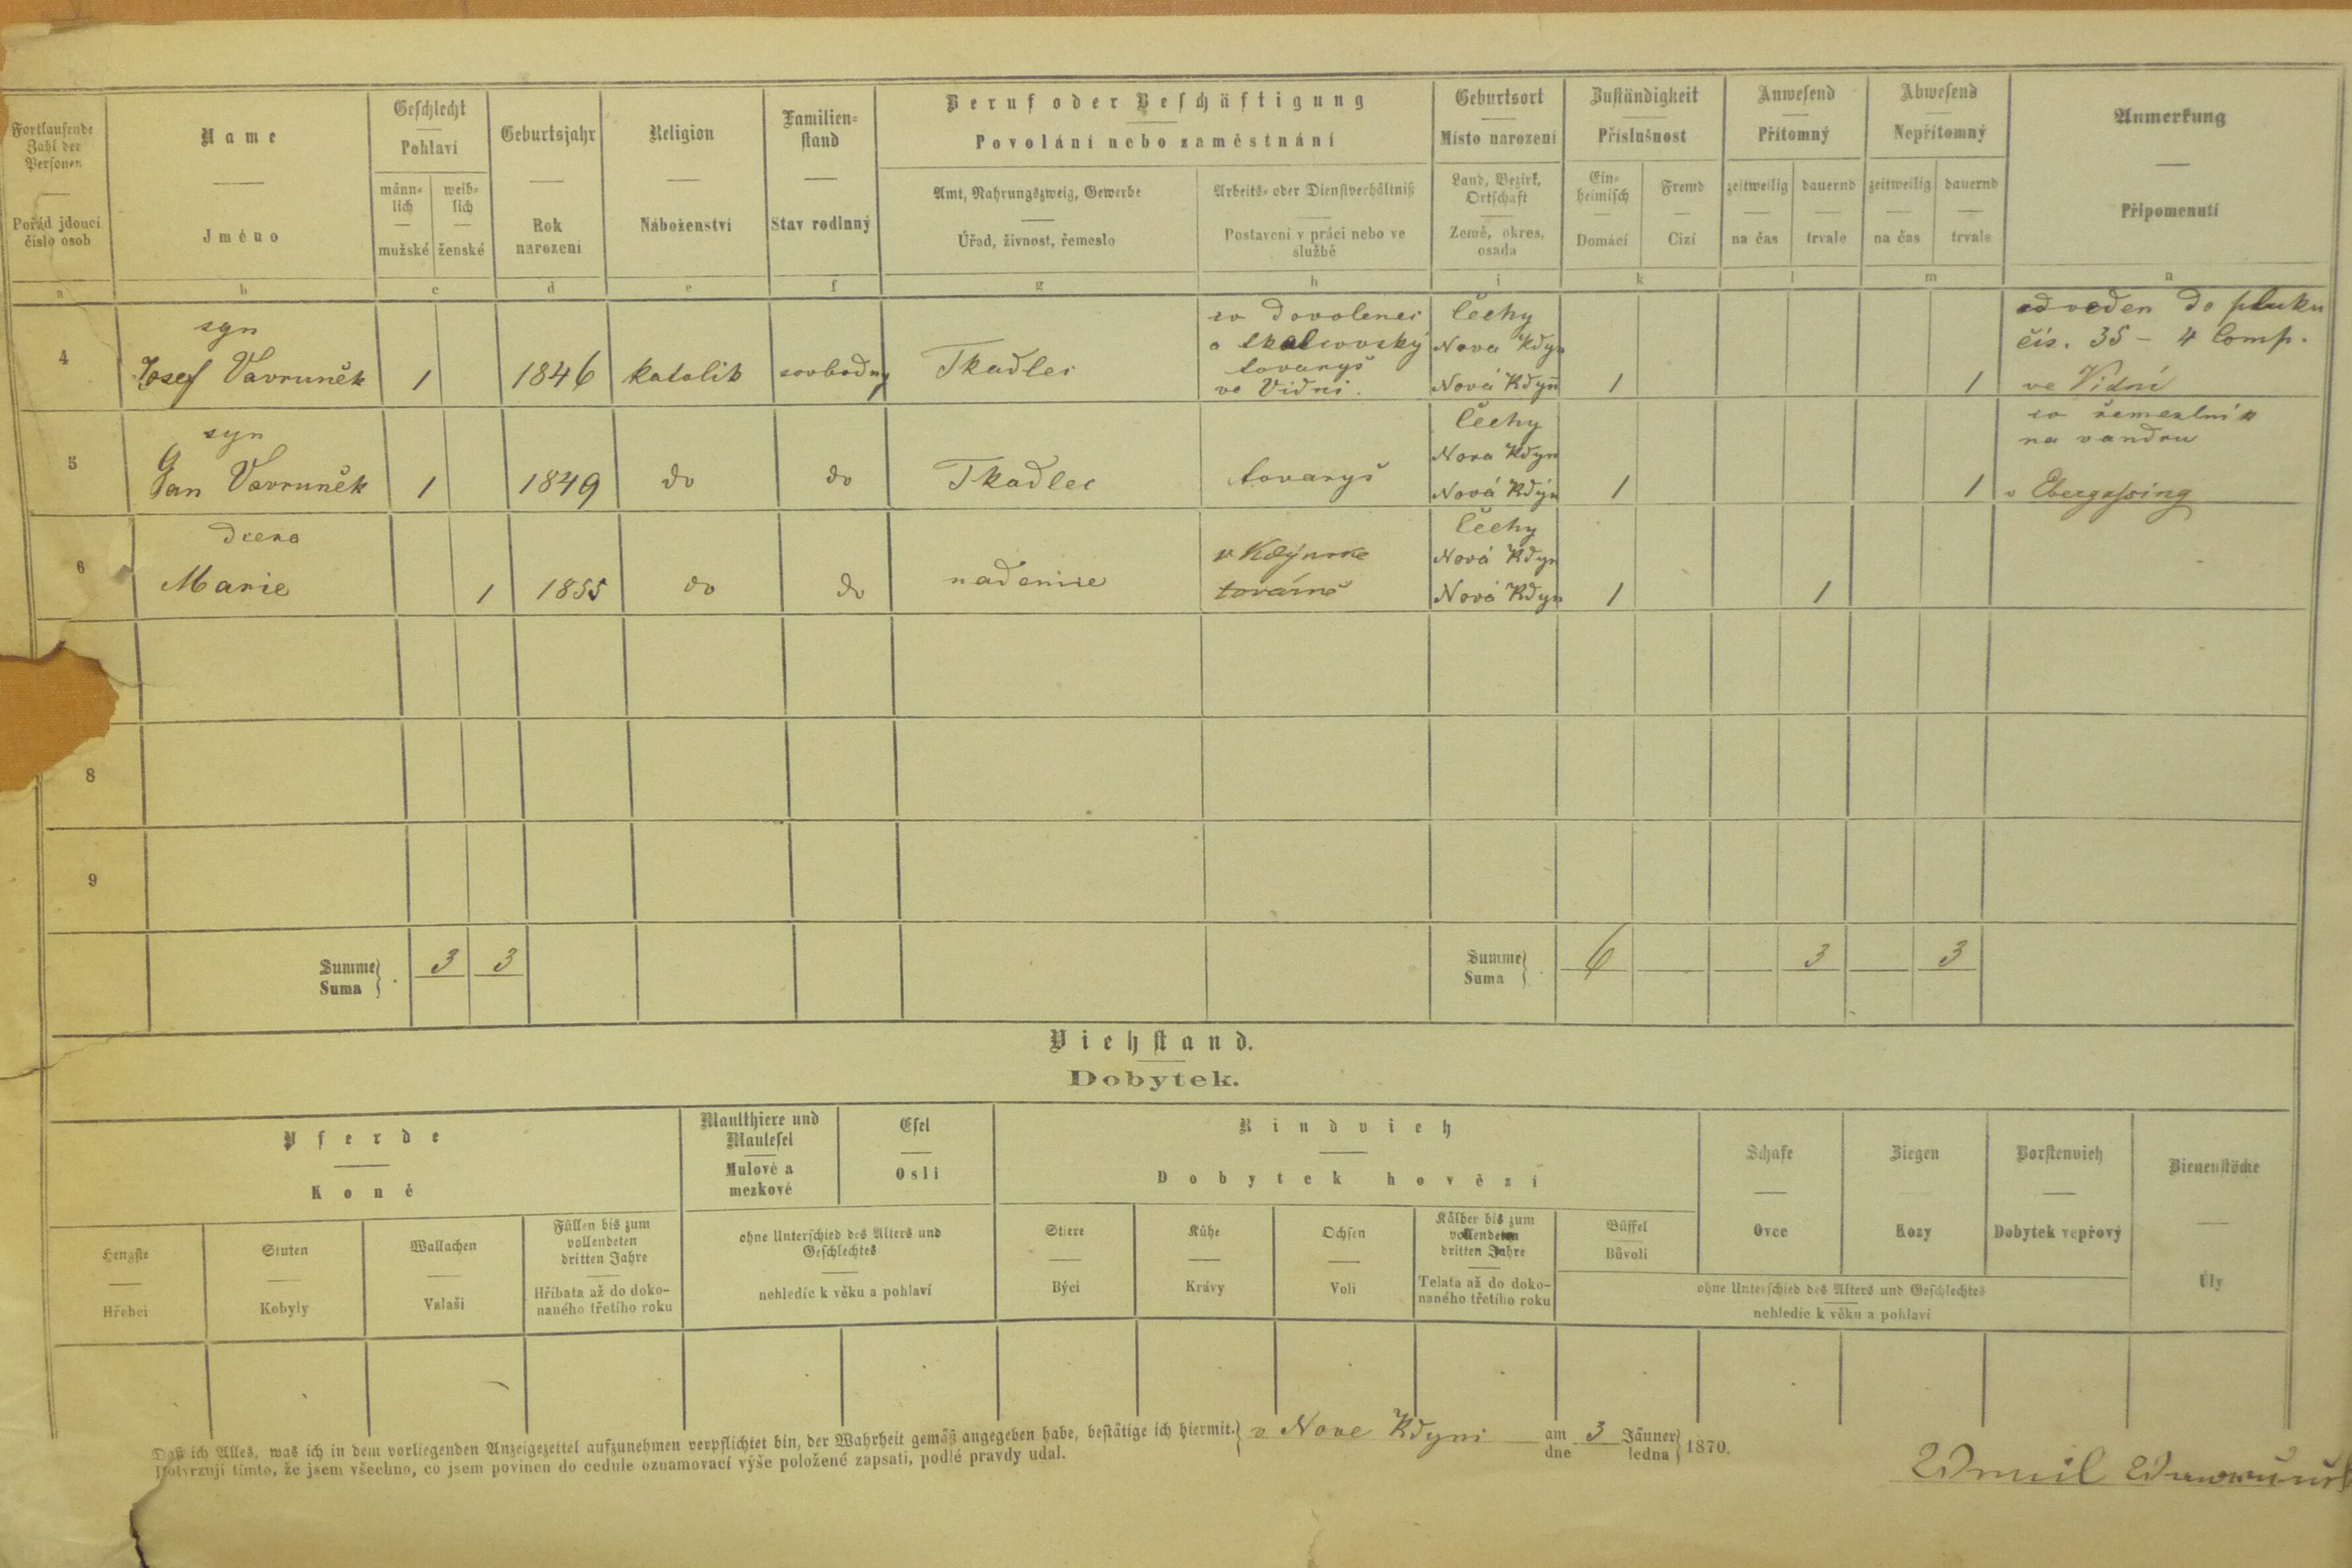 Fortlaufende Zahl der Personen
Pořád jdoucí číslo osob
Name
Jméno
Geschlecht
Pohlaví
männlich
mužské
weiblich
ženské
Geburtsjahr
Rok narození
Religion
Náboženství
Familienstand
Stav rodinný
Beruf oder Beschäftigung
Povolání nebo zaměstnání
Amt, Nahrungszweig, Gewerbe
Úřad, živnost, řemeslo
Arbeits- oder Dienstverhältniß
Postavení v práci nebo ve službě
Geburtsort
Místo narození
Land, Bezirk, Ortschaft
Země, okres, osada
Zuständigkeit
Příslušnost
Einheimisch
Domácí
Fremd
Cizí
Anwesend
Přítomný
zeitweilig
na čas
dauernd
trvale
Abwesend
Nepřítomný
zeitweilig
na čas
dauernd
trvale
Anmerkung
Připomenutí
a b c d e f g h i k l m n
4
syn
Josef Vavruněk 1 1846 katolik svobodny Tkadlec
tovaryš
ve Vidni.
Čechy
Nova Kdyn
Nová Kdyň
1 1
odveden do pluku
čís. 35 - 4 Comp.
ve Vidni
5
syn
Jan Vavruněk 1 1849 do do Tkadlec tovaryš
Čechy
Nova Kdyn
Nová Kdýn
1 1
na vandru
v Ebergassing
6
dcera
Marie 1 1855 do do
v Kdýnske
továrně
Čechy
Nová Kdyn
Nová Kdyn
1 1
8
9
Summe
Suma
3 3
Summe
Suma
6 3 3
Viehstand.
Dobytek.
Pferde
Koně
Hengste
Hřebci
Stuten
Kobyly
Wallachen
Valaši
Füllen bis zum vollendeten dritten Jahre
Hříbata až do dokonaného třetího roku
Maulthiere und Maulesel
Mulové a mezkové
Esel
Osli
ohne Unterschied des Alters und Geschlechtes
nehledíc k věku a pohlaví
Rindvieh
Dobytek hovězí
Stiere
Býci
Kühe
Krávy
Ochsen
Voli
Kälber bis zum vollendeten dritten Jahre
Telata až do dokonaného třetího roku
Büffel
Bůvoli
Schafe
Ovce
Ziegen
Kozy
Borstenvieh
Dobytek vepřový
ohne Unterschied des Alters und Geschlechtes
nehledíc k věku a pohlaví
Bienenstöcke
Úly
Daß ich Alles, was ich in dem vorliegenden Anzeigezettel aufzunehmen verpflichtet bin, der Wahrheit gemäß angegeben habe, bestätige ich hiermit.
Potvrzuji tímto, že jsem všechno, co jsem povinen do cedule oznamovací výše položené zapsati, podlé pravdy udal.
v Nove Kdyni am 3 Jänner 1870.
dne ledna